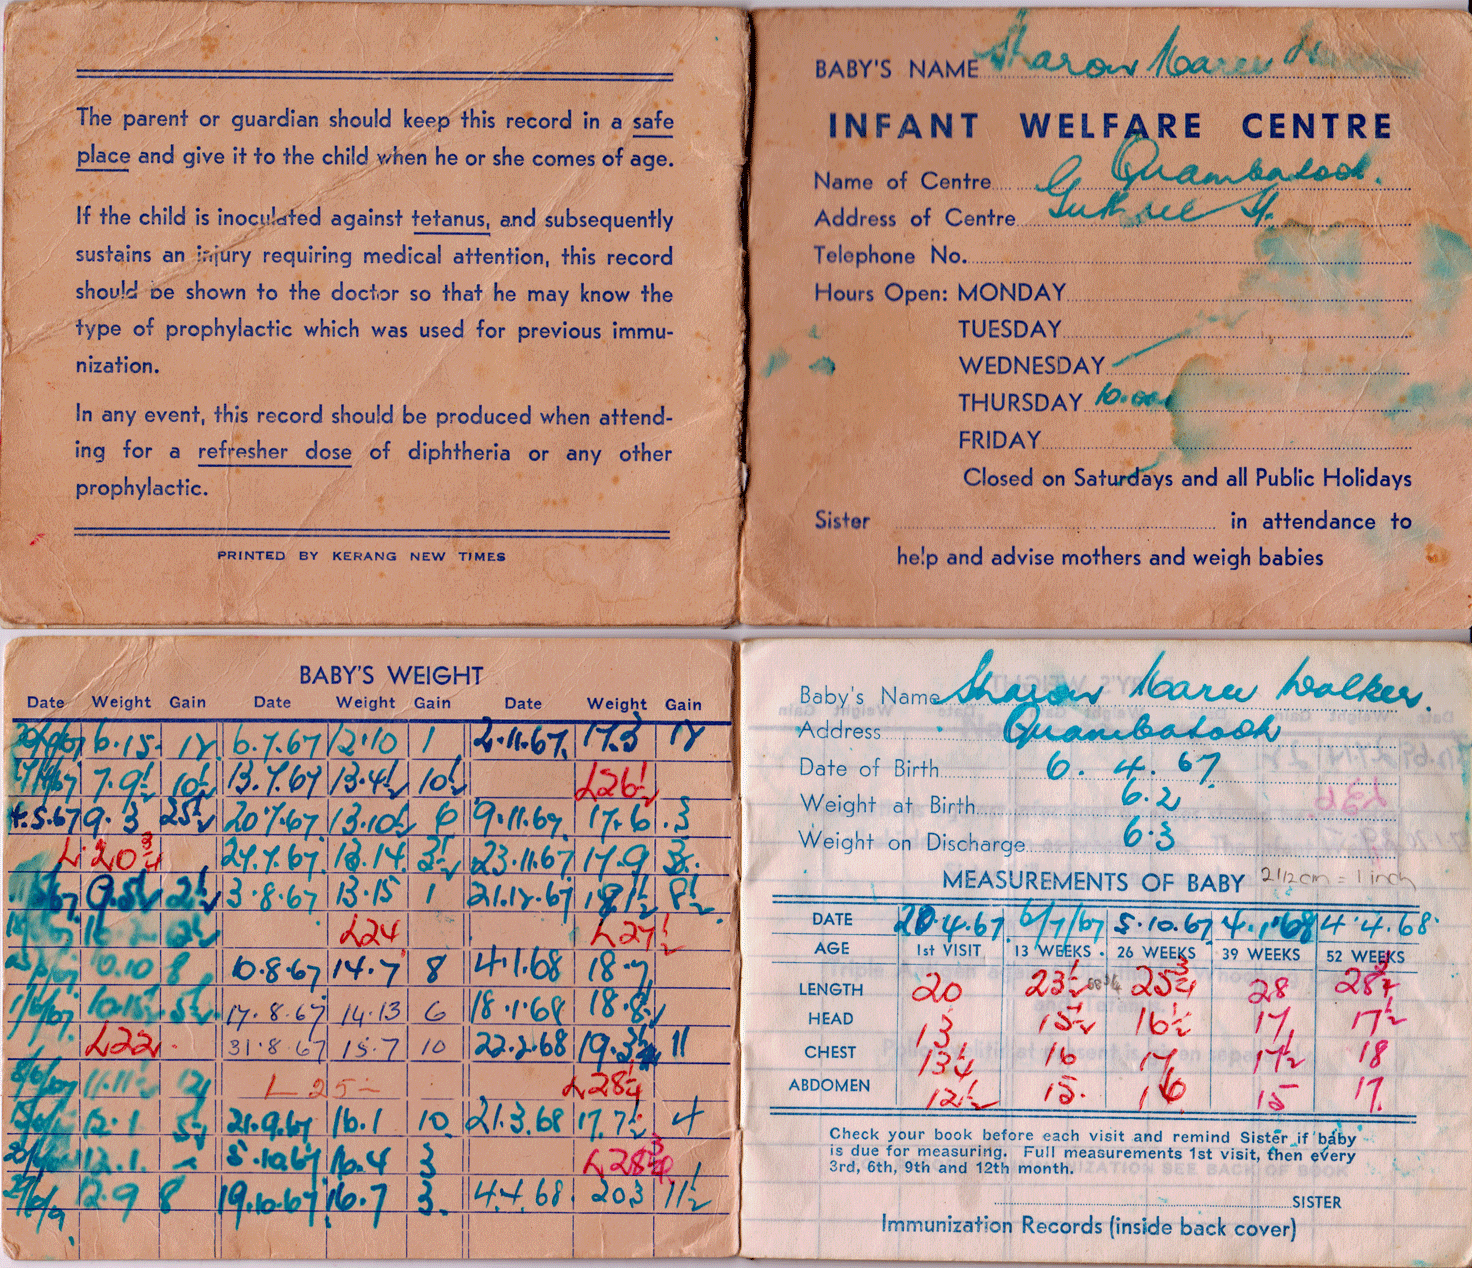 The parent or guardian should keep this record in a safe
place and give it to the child when he or she comes of age.
If the child is inoculated against tetanus, and subsequently
sustains an injury requiring medical attention, this record
should be shown to the doctor so that he may know the
type of prophylactic which was used for previous immu-
nization.
In any event, this record should be produced when attend-
ing for a refresher dose of diphtheria or any other
prophylactic.
PRINTED BY KERANG NEW TIMES
BABY'S NAME Sharon Maree
INFANT WELFARE CENTRE
Name of Centre Quambatook.
Address of Centre Guthrie St.
Telephone No.
Hours Open: MONDAY
TUESDAY
WEDNESDAY
THURSDAY 10.00
FRIDAY
Closed on Saturdays and all Public Holidays
Sister in attendance to
help and advise mothers and weigh babies
BABY'S WEIGHT
Date Weight Gain Date Weight Gain Date Weight Gain
6.15 6.7.67 12.10 1 2.11.67 17.3
7.9½ 10½ 13.7.67 13.4½ 10½ L26½
4.5.67 9.3 25½ 20.7.67 13.10½ 6 9.11.67 17.6 3
L.20¾ 27.7.67 13.14 3½ 23.11.67 17.9
9.5½ 2½ 3.8.67 13.15 1 21.12.67 8½
L24 L27½
10.10 8 10.8.67 14.7 8 4.1.68
10.15½ 5½ 17.8.67 14.13 6 18.1.68 18.8½
L22 31.8.67 15.7 10 22.2.68 11
L 25 L28¼
12.1 5½ 21.9.67 16.1 10 21.3.68 4
12.1 5.10.67 16.4 3 L28¾
12.9 8 19.10.67 16.7 3 4.4.68 20.3 11½
Baby's Name Sharon Maree Walker.
Address Quambatook
Date of Birth 6.4.67
Weight at Birth 6.2
Weight on Discharge 6.3
MEASUREMENTS OF BABY 2 1/2 cm = 1 inch
DATE 20.4.67 6/7/67 5.10.67 4.1.68 4.4.68
AGE 1st VISIT 13 WEEKS 26 WEEKS 39 WEEKS 52 WEEKS
LENGTH 20 23½ 25¾ 28 28¾
HEAD 13 15½ 16½ 17 17½
CHEST 13¼ 16 17 17½ 18
ABDOMEN 12½ 15 16 15 17
Check your book before each visit and remind Sister if baby
is due for measuring. Full measurements 1st visit, then every
3rd, 6th, 9th and 12th month.
SISTER
Immunization Records (inside back cover)